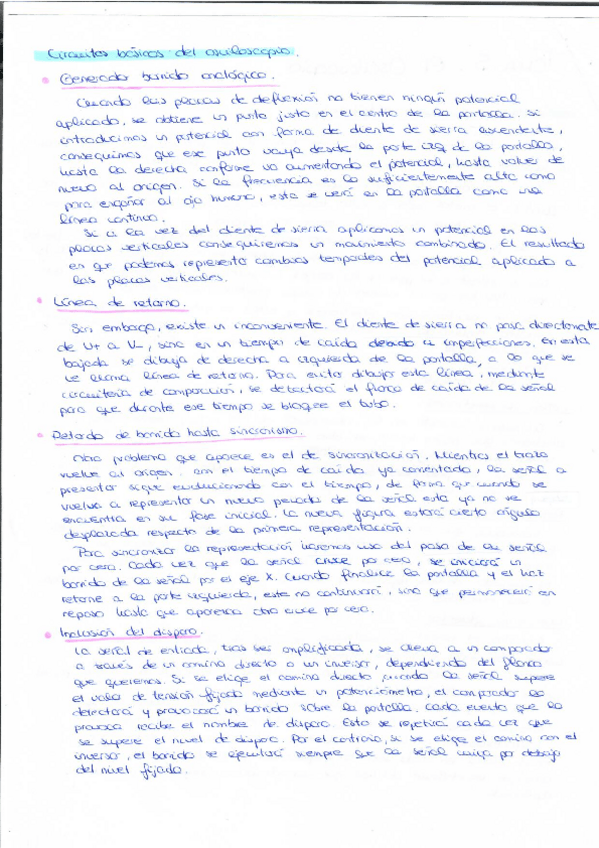 Circuitos básicos del osciloscopio.
Generador barrido analógico.
Cuando las placas de deflexión no tienen ningún potencial
aplicado, se obtiene un punto justo en el centro de la pantalla. Si
introducimos un potencial con forma de diente de sierra ascendente,
conseguimos que ese punto vaya desde la parte izq de la pantalla,
hasta la derecha conforme va aumentando el potencial, hasta volver de
nuevo al origen. Si la frecuencia es lo suficientemente alta como
para engañar al ojo humano, esta se verá en la pantalla como una
línea continua.
Si a la vez del diente de sierra aplicamos un potencial en las
placas verticales conseguiremos un movimiento combinado. El resultado
es que podemos representar cambios temporales del potencial aplicado a
las placas verticales.
Línea de retorno.
Sin embargo, existe un inconveniente. El diente de sierra no pasa directamente
de V+ a V-, sino en un tiempo de caída debido a imperfecciones. En esta
bajada se dibuja de derecha a izquierda de la pantalla, a lo que se
le llama línea de retorno. Para evitar dibujar esta línea, mediante
circuitería de comparación, se detectará el flanco de caída de la señal
para que durante ese tiempo se bloquee el tubo.
Retardo de barrido hasta sincronismo.
Otro problema que aparece es el de sincronización. Mientras el trazo
vuelve al origen con el tiempo de caída ya comentado, la señal a
presentar sigue evolucionando con el tiempo, de forma que cuando se
vuelva a representar un nuevo periodo de la señal esta ya no se
encuentra en su fase inicial. La nueva figura estará cierto ángulo
desplazada respecto de la primera representación.
Para sincronizar la representación haremos uso del paso de la señal
por cero. Cada vez que la señal cruce por cero, se iniciará un
barrido de la señal por el eje X. Cuando finalice la pantalla y el haz
retorne a la parte izquierda, este no continuará, sino que permanecerá en
reposo hasta que aparezca otro cruce por cero.
Inclusión del disparo.
La señal de entrada, tras ser amplificada, se lleva a un comparador
a través de un camino directo o un inversor, dependiendo del flanco
que queramos. Si se elige el camino directo cuando la señal supere
el valor de tensión fijado mediante un potenciómetro, el comparador lo
detectará y provocará un barrido sobre la pantalla. Cada evento que lo
provoca recibe el nombre de disparo. Esto se repetirá cada vez que
se supere el nivel de disparo. Por el contrario, si se elige el camino con el
inversor, el barrido se ejecutará siempre que la señal caiga por debajo
del nivel fijado.